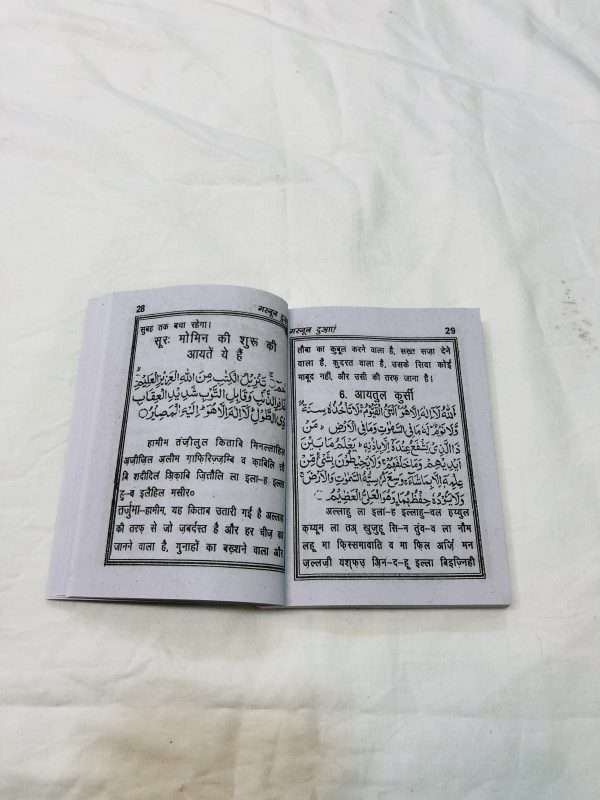 28
मस्नून
सुबह तक बचा रहेगा।
सूरः मोमिन की शुरू की
आयतें ये हैं
تَنْزِيْلُ الْكِتٰبِ مِنَ اللّٰهِ الْعَزِيْزِ الْعَلِيْمِ
الذَّنْبِ وَقَابِلِ التَّوْبِ شَدِيْدِ الْعِقَابِ
ذِي الطَّوْلِ لَآ اِلٰهَ اِلَّا هُوَ اِلَيْهِ الْمَصِيْرُ○
हामीम तंज़ीलुल किताबि मिनल्लाहिल
अ़ज़ीज़िल अ़लीम ग़ाफ़िरिज़्ज़म्बि व क़ाबिलि
बि शदीदिल अ़िक़ाबि ज़ित्तौलि ला इला-ह इल्ला
हु-व इलैहिल मसीर०
तर्जुमा-हामीम, यह किताब उतारी गई है अल्लाह
की तरफ़ से जो ज़बर्दस्त है और हर चीज़ का
जानने वाला है, गुनाहों का बख़्शने वाला और
मस्नून दुआएं
29
तौबा का क़ुबूल करने वाला है, सख़्त सज़ा देने
वाला है, क़ुदरत वाला है, उसके सिवा कोई
माबूद नहीं, और उसी की तरफ़ जाना है।
6. आयतुल कुर्सी
اَللّٰهُ لَآ اِلٰهَ اِلَّا هُوَ اَلْحَيُّ الْقَيُّوْمُ لَا تَاْخُذُهٗ سِنَةٌ
وَّلَا نَوْمٌ لَهٗ مَا فِي السَّمٰوٰتِ وَمَا فِي الْاَرْضِ مَنْ
ذَا الَّذِيْ يَشْفَعُ عِنْدَهٗٓ اِلَّا بِاِذْنِهٖ يَعْلَمُ مَا بَيْنَ
اَيْدِيْهِمْ وَمَا خَلْفَهُمْ وَلَا يُحِيْطُوْنَ بِشَيْءٍ مِّنْ
عِلْمِهٖٓ اِلَّا بِمَا شَآءَ وَسِعَ كُرْسِيُّهُ السَّمٰوٰتِ وَالْاَرْضَ
وَلَا يَئُوْدُهٗ حِفْظُهُمَا وَهُوَ الْعَلِيُّ الْعَظِيْمُ
अल्लाहु ला इला-ह इल्लाहु-वल हय्युल
क़य्यूम ला तअ् ख़ुज़ुहू सि-न तुंव-व ला नौम
लहू मा फ़िस्समावाति व मा फ़िल अर्ज़ि मन
ज़ल्लज़ी यश्फ़उ अ़िन-द-हू इल्ला बिइज़्निही